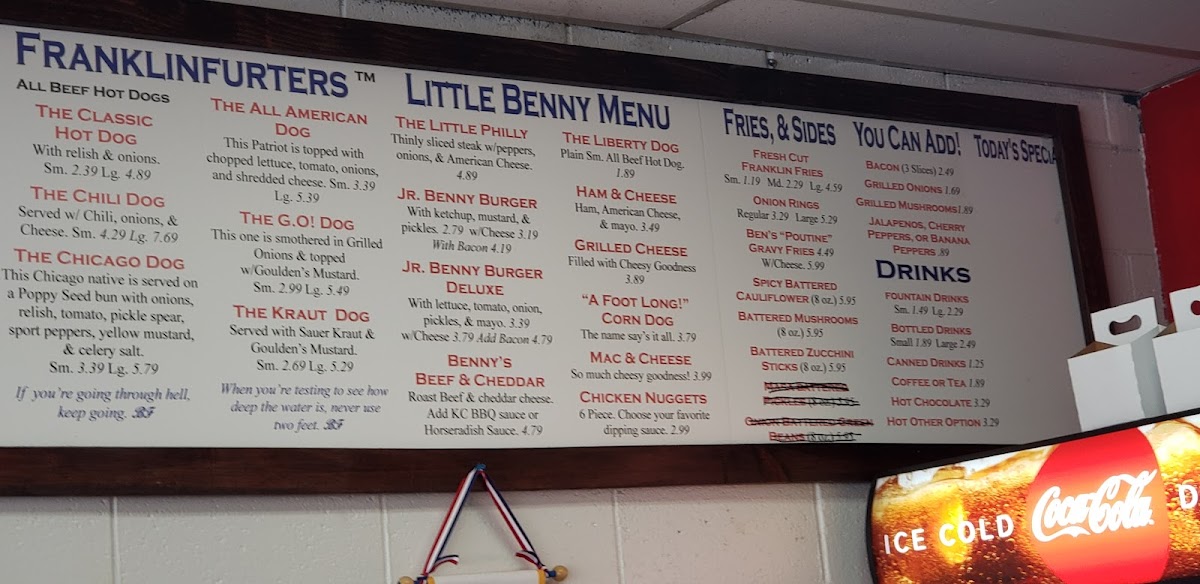 FRANKLINFURTERS ™
ALL BEEF HOT DOGS
THE CLASSIC
HOT DOG
With relish & onions.
Sm. 2.39 Lg. 4.89
THE CHILI DOG
Served w/ Chili, onions, &
Cheese. Sm. 4.29 Lg. 7.69
THE CHICAGO DOG
This Chicago native is served on
a Poppy Seed bun with onions,
relish, tomato, pickle spear,
sport peppers, yellow mustard,
& celery salt.
Sm. 3.39 Lg. 5.79
If you're going through hell,
keep going. BF
THE ALL AMERICAN
DOG
This Patriot is topped with
chopped lettuce, tomato, onions,
and shredded cheese. Sm. 3.39
Lg. 5.39
THE G.O! DOG
This one is smothered in Grilled
Onions & topped
w/Goulden's Mustard.
Sm. 2.99 Lg. 5.49
THE KRAUT DOG
Served with Sauer Kraut &
Goulden's Mustard.
Sm. 2.69 Lg. 5.29
When you're testing to see how
deep the water is, never use
two feet. BF
LITTLE BENNY MENU
THE LITTLE PHILLY
Thinly sliced steak w/peppers,
onions, & American Cheese.
4.89
JR. BENNY BURGER
With ketchup, mustard, &
pickles. 2.79 w/Cheese 3.19
With Bacon 4.19
JR. BENNY BURGER
DELUXE
With lettuce, tomato, onion,
pickles, & mayo. 3.39
w/Cheese 3.79 Add Bacon 4.79
BENNY'S
BEEF & CHEDDAR
Roast Beef & cheddar cheese.
Add KC BBQ sauce or
Horseradish Sauce. 4.79
THE LIBERTY DOG
Plain Sm. All Beef Hot Dog.
1.89
HAM & CHEESE
Ham, American Cheese,
& mayo. 3.49
GRILLED CHEESE
Filled with Cheesy Goodness
3.89
"A FOOT LONG!"
CORN DOG
The name say's it all. 3.79
MAC & CHEESE
So much cheesy goodness! 3.99
CHICKEN NUGGETS
6 Piece. Choose your favorite
dipping sauce. 2.99
FRIES, & SIDES
FRESH CUT
FRANKLIN FRIES
Sm. 1.19 Md. 2.29 Lg. 4.59
ONION RINGS
Regular 3.29 Large 5.29
BEN'S "POUTINE"
GRAVY FRIES 4.49
W/Cheese. 5.99
SPICY BATTERED
CAULIFLOWER (8 oz.) 5.95
BATTERED MUSHROOMS
(8 oz.) 5.95
BATTERED ZUCCHINI
STICKS (8 oz.) 5.95
BATTERED
PICKLES (8 oz.) 5.95
ONION BATTERED GREEN
BEANS (8 oz.) 5.95
YOU CAN ADD!
BACON (3 Slices) 2.49
GRILLED ONIONS 1.69
GRILLED MUSHROOMS 1.89
JALAPENOS, CHERRY
PEPPERS, OR BANANA
PEPPERS .89
DRINKS
FOUNTAIN DRINKS
Sm. 1.49 Lg. 2.29
BOTTLED DRINKS
Small 1.89 Large 2.49
CANNED DRINKS 1.25
COFFEE OR TEA 1.89
HOT CHOCOLATE 3.29
HOT OTHER OPTION 3.29
TODAY'S SPECIA
ICE COLD Coca-Cola D